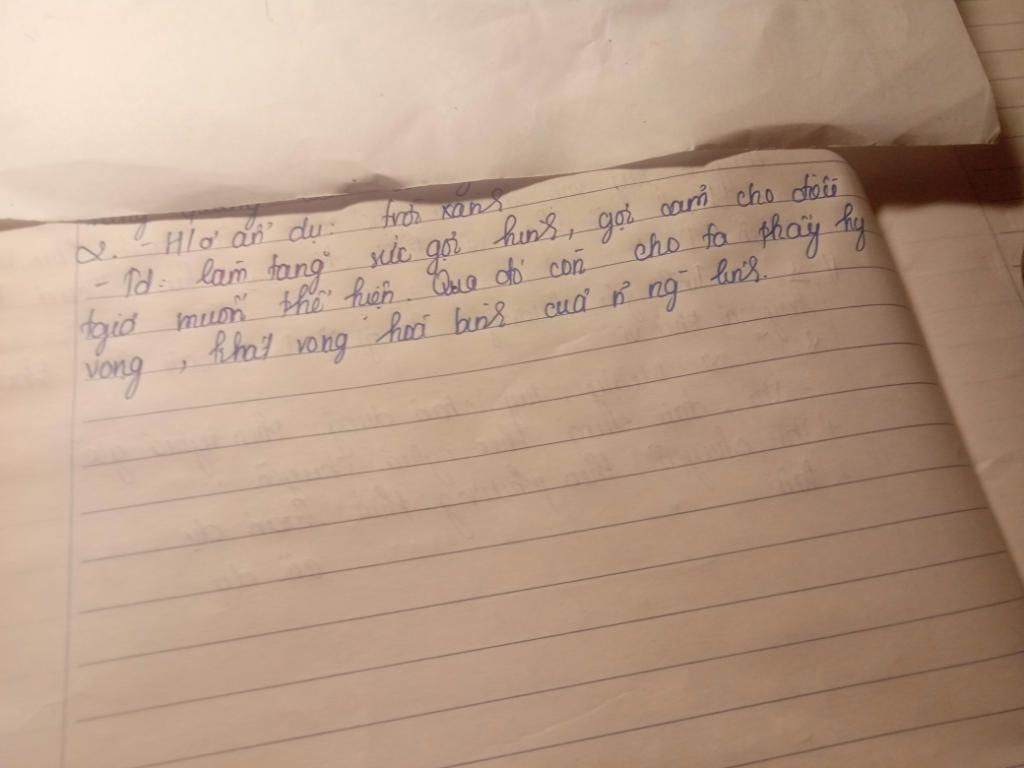 2. - H/ả ẩn dụ: trời xanh
- Td: làm tăng sức gợi hình, gợi cảm cho điều
tgiả muốn thể hiện. Qua đó còn cho ta thấy hy
vọng, khát vọng hoà bình của n~ ng lính.